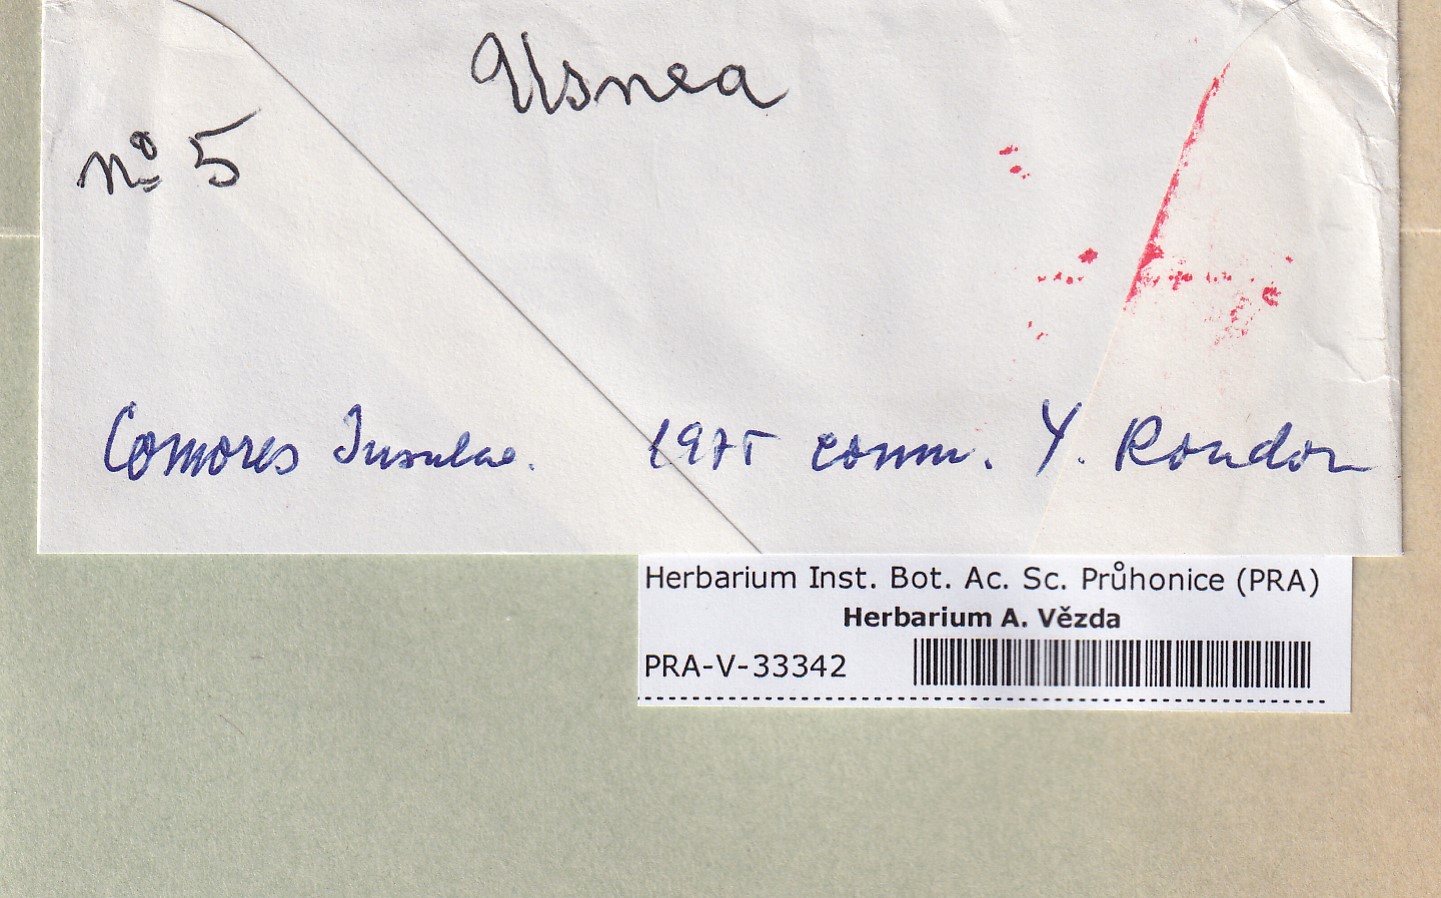 Usnea
nº 5
Comores Insulae. 1975 comm. Y. Rondon
Herbarium Inst. Bot. Ac. Sc. Průhonice (PRA)
Herbarium A. Vězda
PRA-V-33342